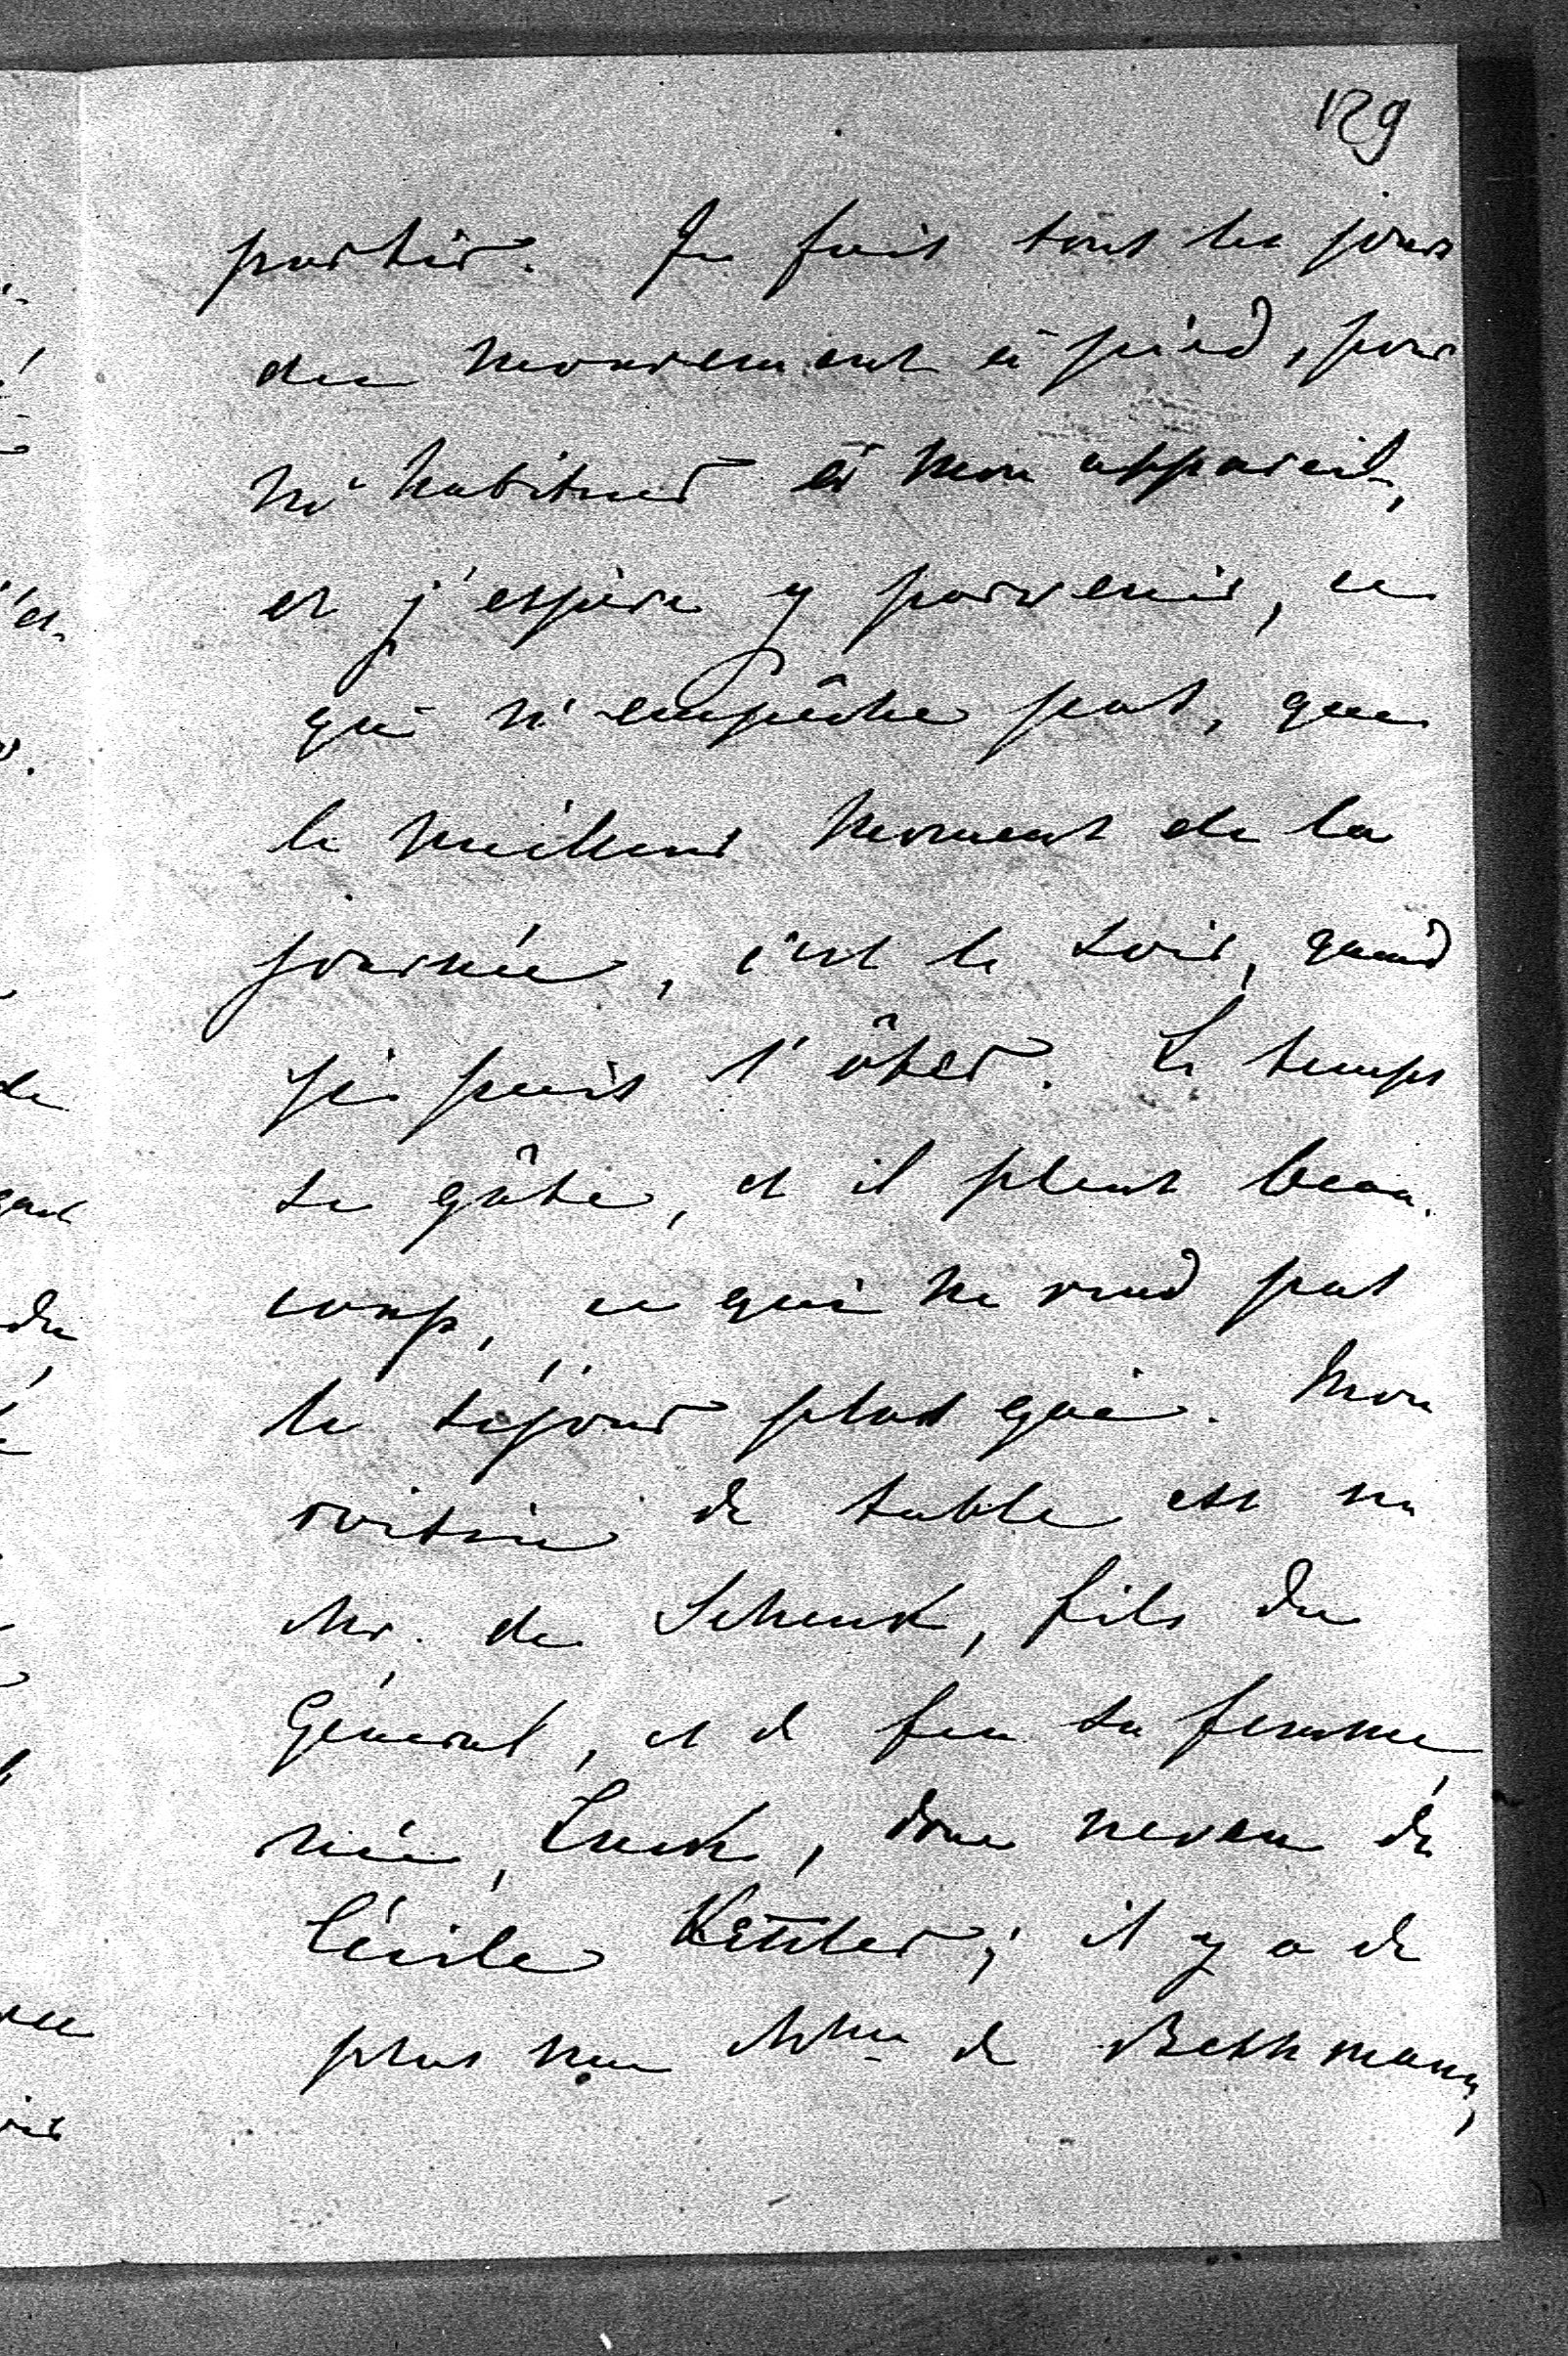 129
partir. Je fais tous les jours
du mouvement à pied, pour
m'habituer à mon appareil,
et j'espère y parvenir, ce
qui n'empêche pas, que
le meilleur moment de la
journée, c'est le soir, quand
je puis l'ôter. Le temps
se gâte, et il pleut beau-
coup, ce qui ne rend pas
le séjour plus gai. Mon
voisin de table est un
Mr. de Schenk, fils du
Général, et de feu sa femme,
née Luck, donc neveu de
Cécile Kettler; il y a de
plus une Mme de Bethmann,